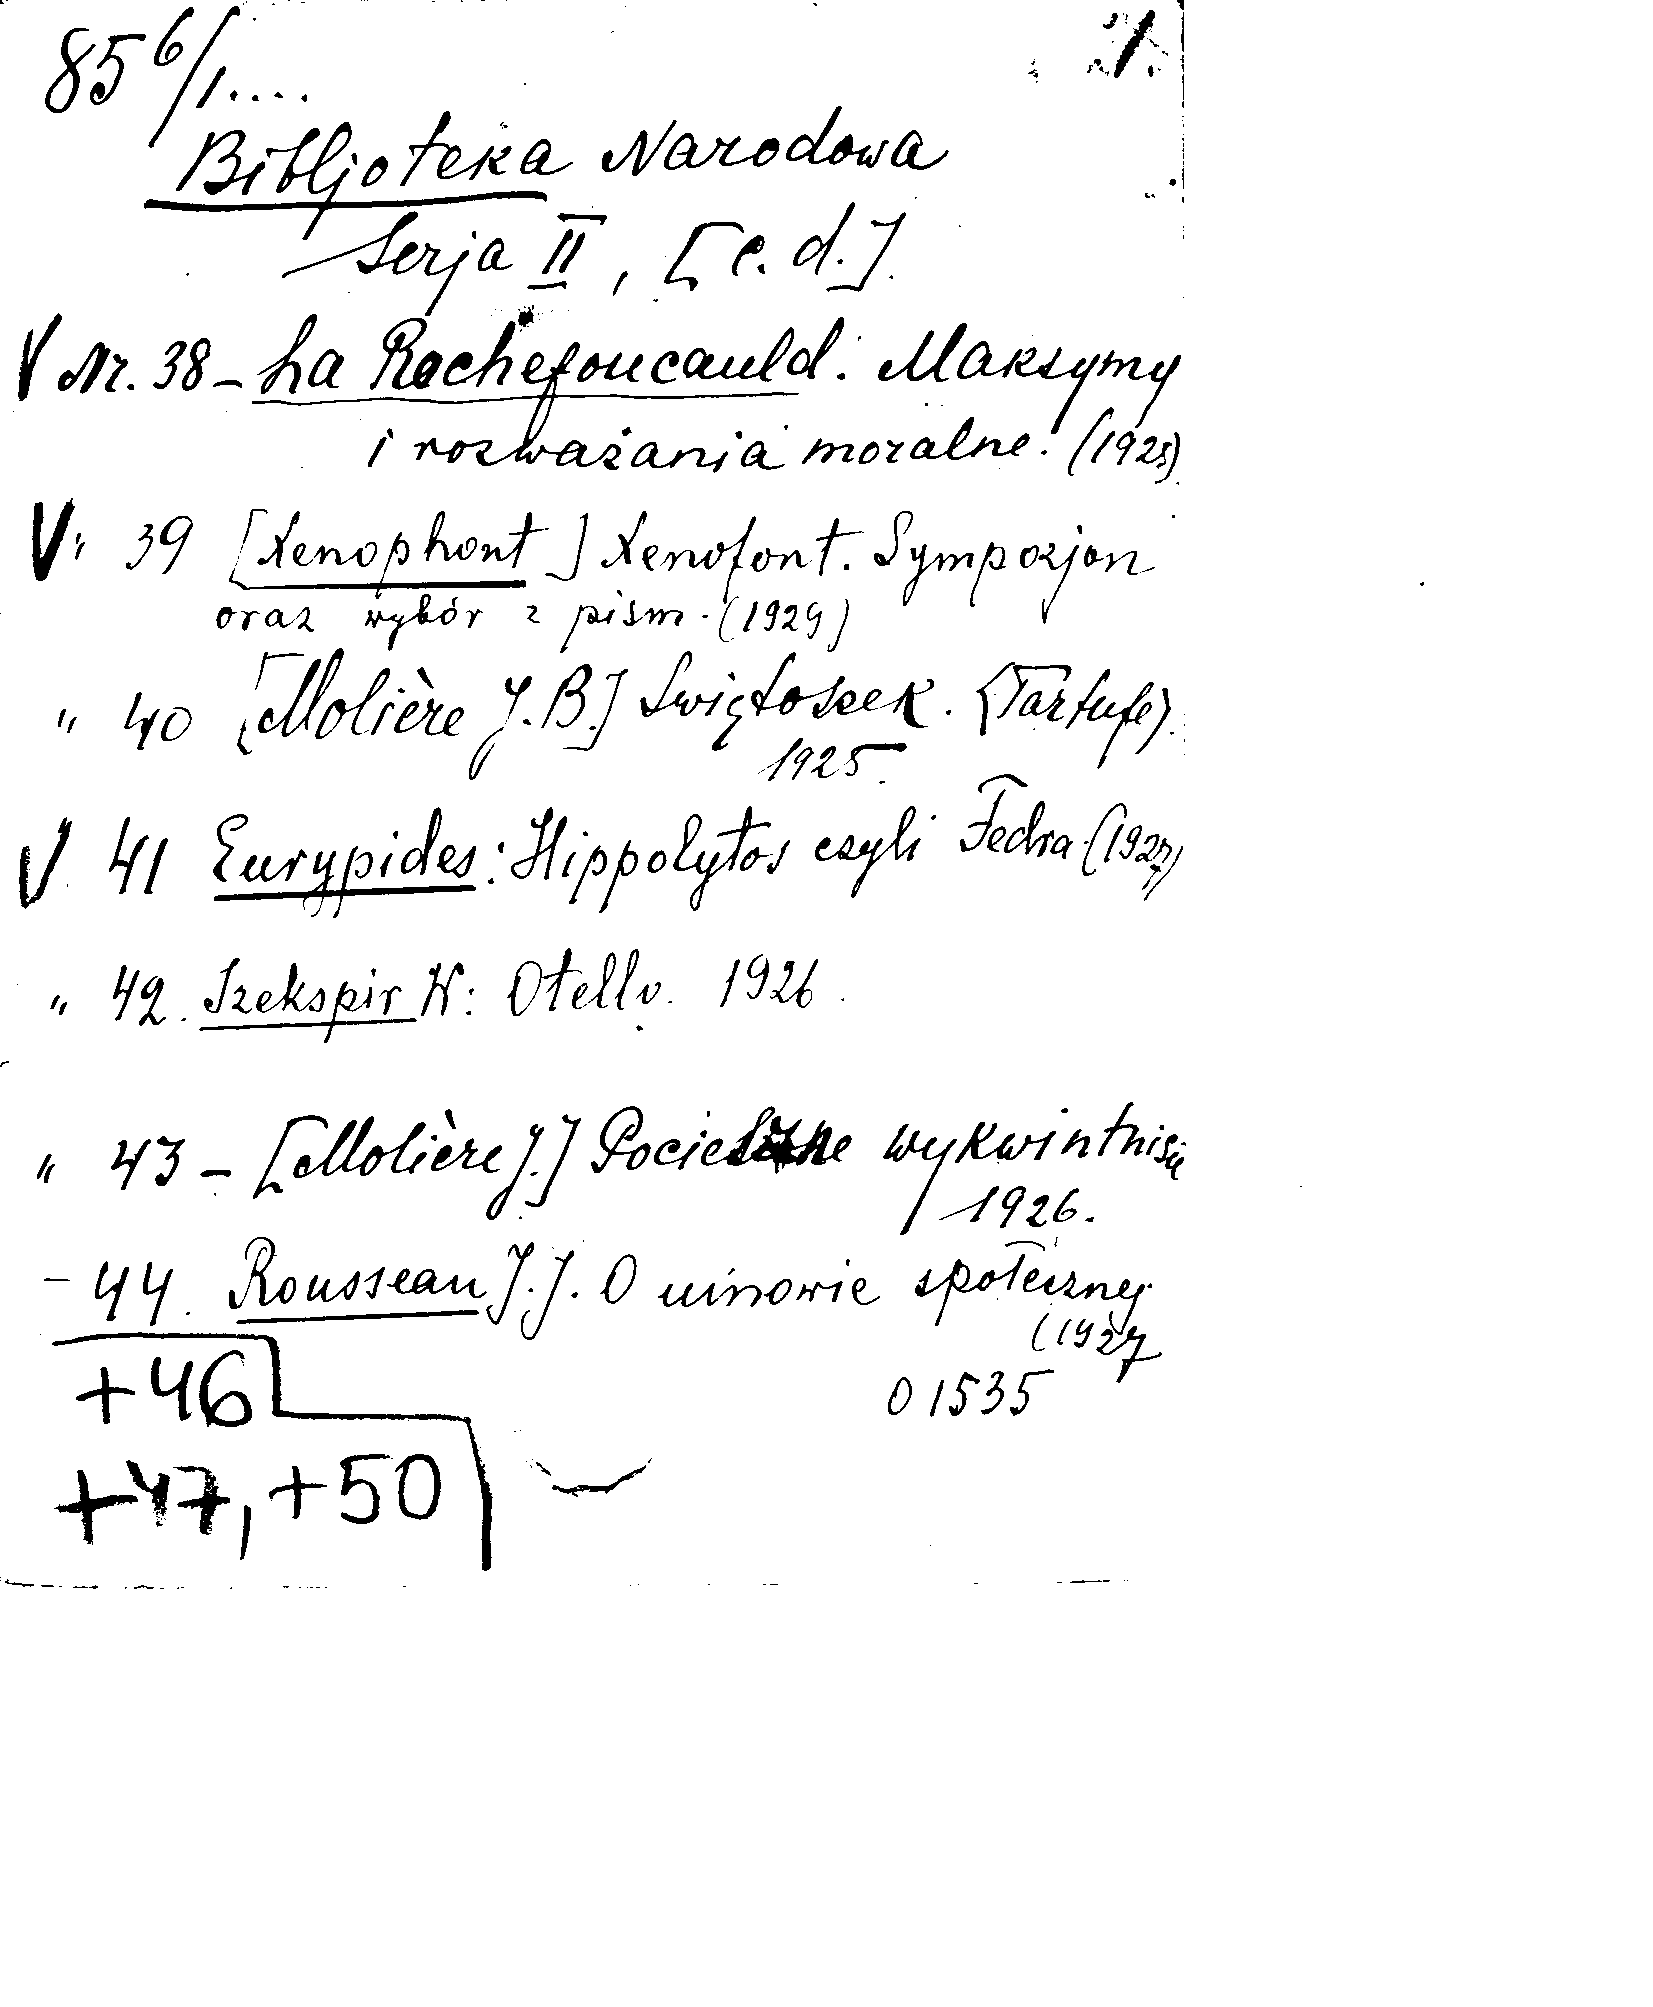 85 6/1....
1.
Bibljoteka Narodowa
Serja II, [c. d.]
V Nr. 38 - La Rochefoucauld: Maksymy
i rozważania moralne. (1925)
V " 39 [Xenophont] Xenofont. Sympozjon
oraz wybór z pism. (1929)
" 40 [Molière J. B.] Świętoszek. (Tartufe).
1925.
V 41 Eurypides: Hippolytos czyli Fedra (1927)
" 42. Szekspir W: Otello. 1926.
" 43 - [Molière J.] Pocieszne wykwintnisie
1926.
- 44. Rousseau J. J. O umowie społecznej
(1927
+46
01535
+47, +50